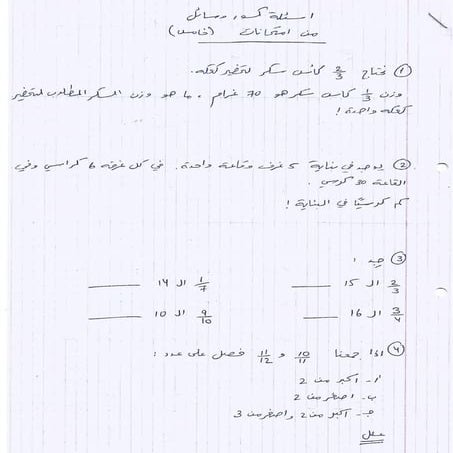 اسئلة كسور وسائل
من امتحانات (خامس)
① نحتاج 2/3 كأس سكر لتحضير كعكه.
وزن 1/3 كاس سكر هو 70 غرام. ما هو وزن السكر المطلوب لتحضير
كعكه واحدة!
② يوجد في بناية 5 غرف وقاعة واحدة. في كل غرفه 6 كراسي وفي
القاعة 30 كرسي.
كم كرسيًا في البناية!
③ جِد:
2/3 الـ 15 ____ 1/7 الـ 14 ____
3/4 الـ 16 ____ 9/10 الـ 10 ____
④ اذا جمعنا 10/11 و 11/12 نحصل على عدد:
أ- اكبر من 2
ب- اصغر من 2
جـ- اكبر من 2 واصغر من 3
علل